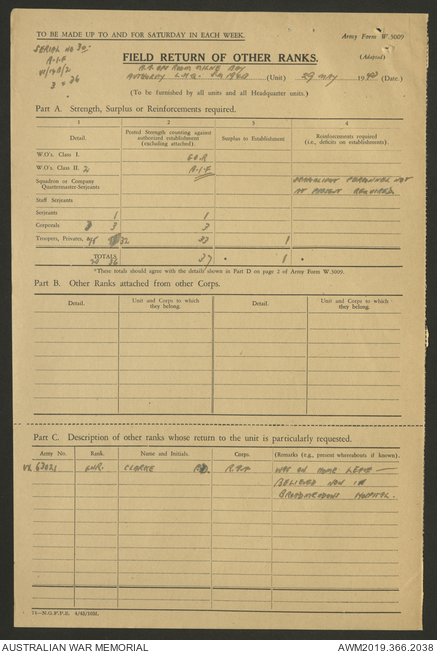 TO BE MADE UP TO AND FOR SATURDAY IN EACH WEEK.
Army Form W.3009
(Adapted)
SERIAL No 30.
A.I.F
FIELD RETURN OF OTHER RANKS.
A.A. OPS ROOM MILNE BAY
AUTHORITY L.H.Q. (Unit) 29 MAY 1943 (Date.)
(To be furnished by all units and all Headquarter units.)
Part A. Strength, Surplus or Reinforcements required.
1 2 3 4
Detail. Posted Strength counting against authorized establishment (excluding attached). Surplus to Establishment Reinforcements required (i.e., deficits on establishments).
W.O's. Class I.
W.O's. Class II. 2
A.I.F
Squadron or Company Quartermaster-Serjeants
PERSONNEL NOT
AT PRESENT REQUIRED
Staff Serjeants
Serjeants 1 1
Corporals 3 3
Troopers, Privates, 32 33 1
TOTALS 36 37 * 1 *
*These totals should agree with the details shown in Part D on page 2 of Army Form W.3009.
Part B. Other Ranks attached from other Corps.
Detail. Unit and Corps to which they belong. Detail. Unit and Corps to which they belong.
Part C. Description of other ranks whose return to the unit is particularly requested.
Army No. Rank. Name and Initials. Corps. (Remarks (e.g., present whereabouts if known).
VX 63021 GNR. CLARKE R.A.A WAS ON HOME LEAVE —
BELIEVED NOW IN
HOSPITAL.
AUSTRALIAN WAR MEMORIAL
AWM2019.366.2038